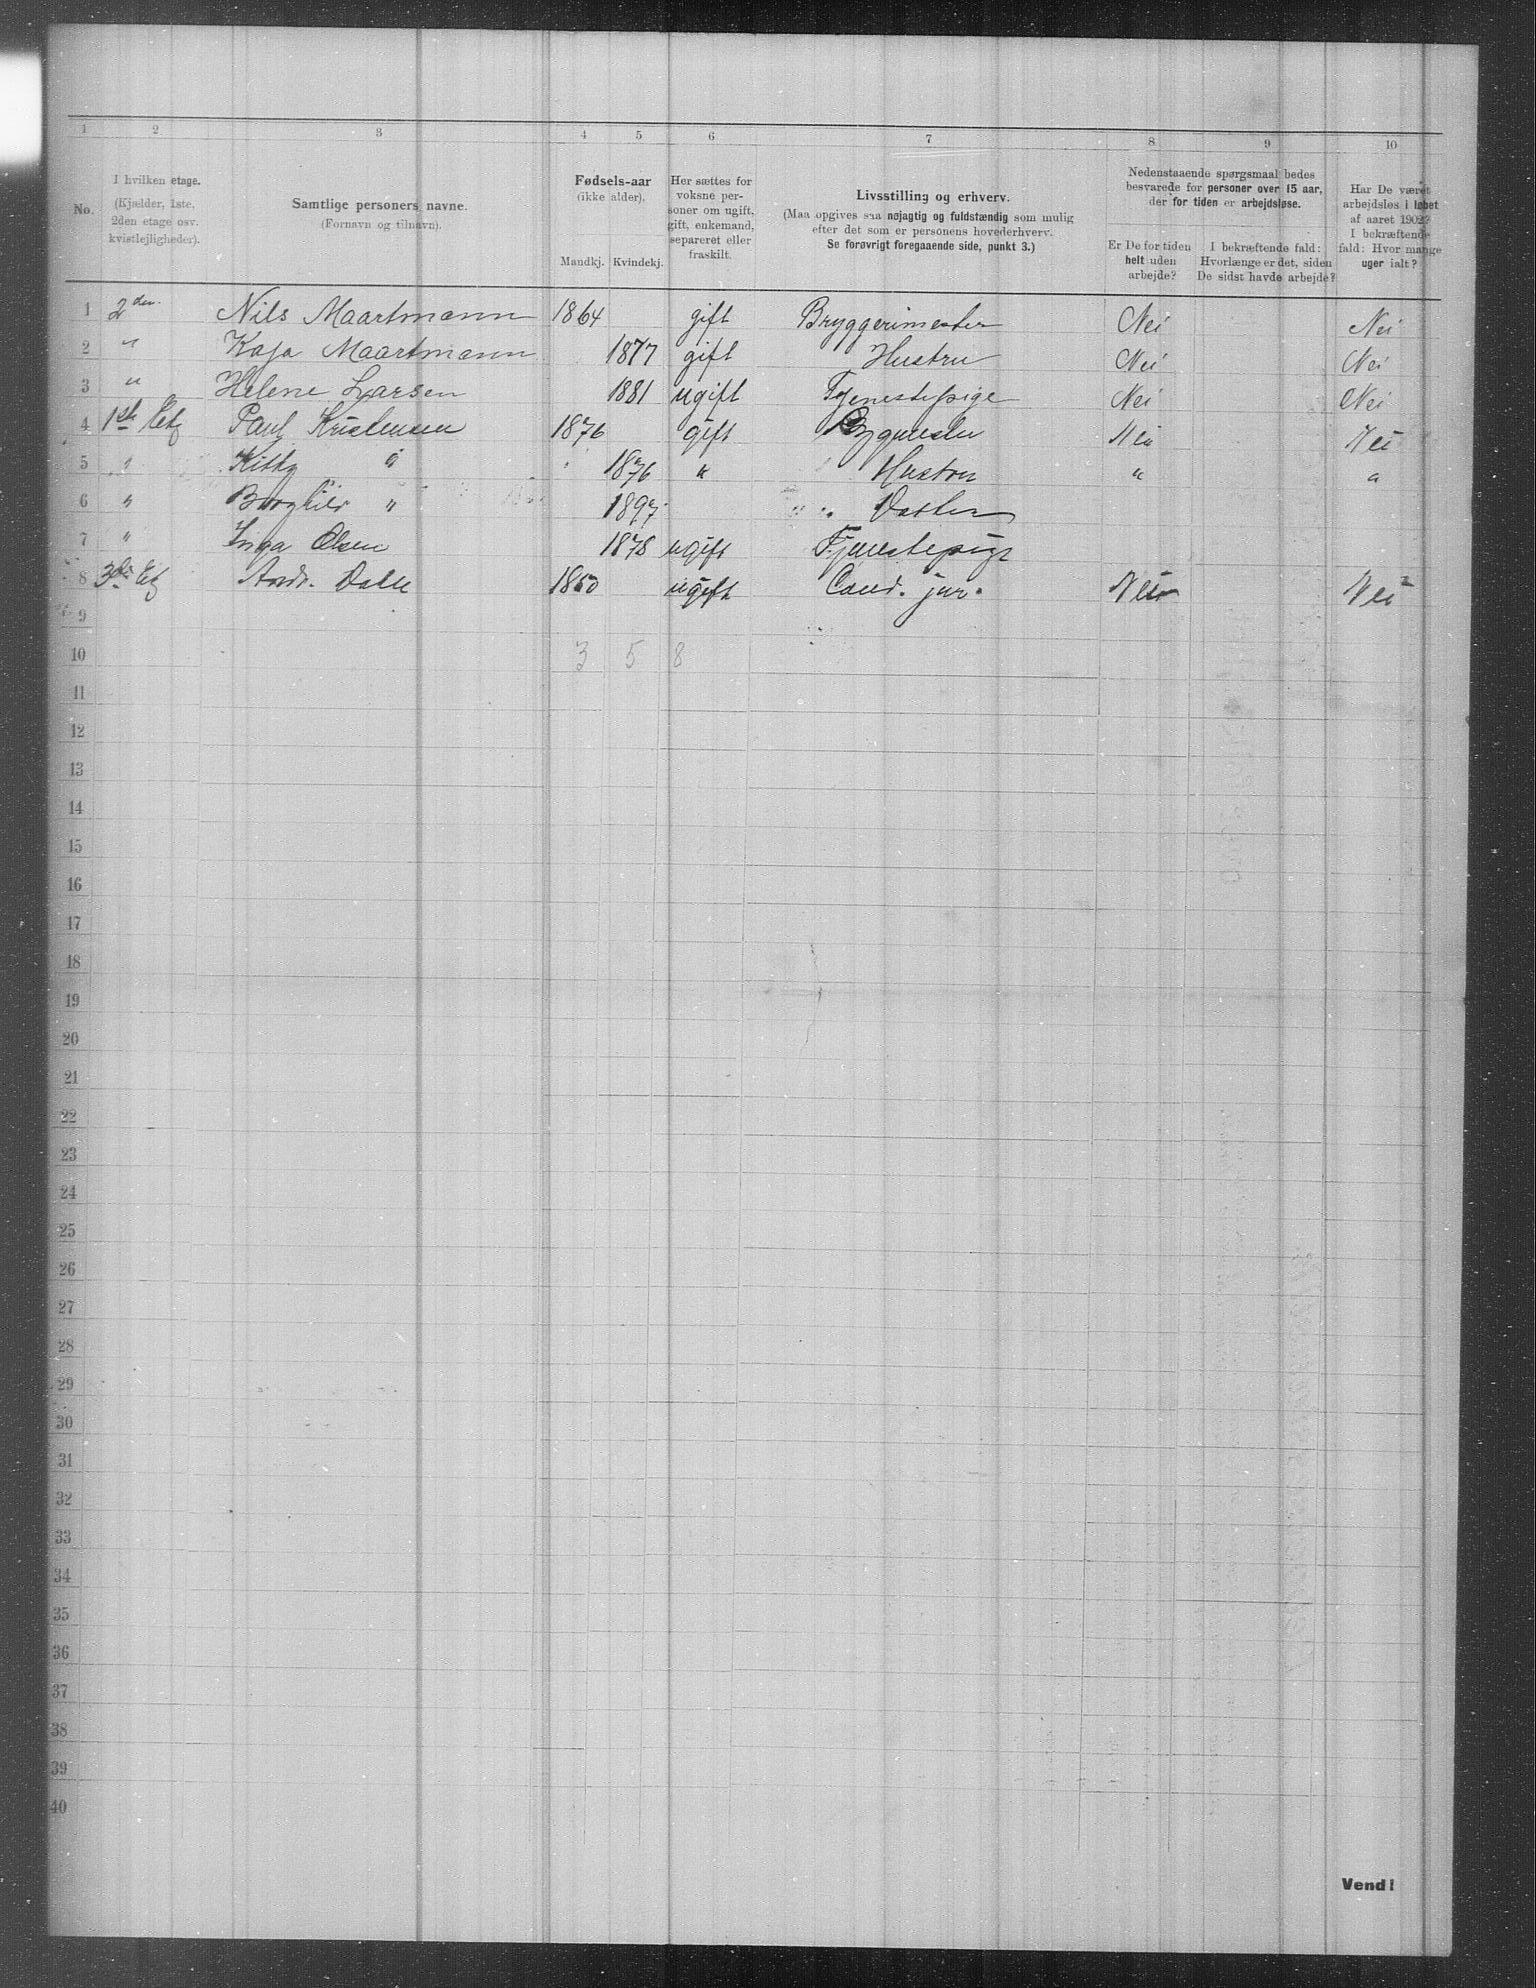 1 2 3 4 5 6 7 8 9 10
No.
I hvilken etage.
(Kjælder, 1ste,
2den etage osv.
kvistlejligheder).
Samtlige personers navne.
(Fornavn og tilnavn).
Fødsels-aar
(ikke alder).
Mandkj. Kvindekj.
Her sættes for
voksne per-
soner om ugift,
gift, enkemand,
separeret eller
fraskilt.
Livsstilling og erhverv.
(Maa opgives saa nøjagtig og fuldstændig som mulig
efter det som er personens hovederhverv.
Se forøvrigt foregaaende side, punkt 3.)
Nedenstaaende spørgsmaal bedes
besvarede for personer over 15 aar,
der for tiden er arbejdsløse.
Er De for tiden
helt uden
arbejde?
I bekræftende fald:
Hvorlænge er det, siden
De sidst havde arbejde?
Har De været
arbejdsløs i løbet
af aaret 1902?
I bekræftende
fald: Hvor mange
uger ialt?
1 2den Nils Maartmann 1864 gift Bryggerimester Nei Nei
2 " Kaja Maartmann 1877 gift Hustru Nei Nei
3 " Helene Larsen 1881 ugift Tjenestepige Nei Nei
4 1ste Etg Paul Kristensen 1876 gift Nei Nei
5 " Kitty " 1876 " Hustru " "
6 " Borghild " 1897 Datter
7 " Inga Olsen 1878 ugift Tjenestepige
8 3die Etg Andr. 1860 ugift Cand. jur. Nei Nei
9
10 3 5 8
11
12
13
14
15
16
17
18
19
20
21
22
23
24
25
26
27
28
29
30
31
32
33
34
35
36
37
38
39
40
Vend!